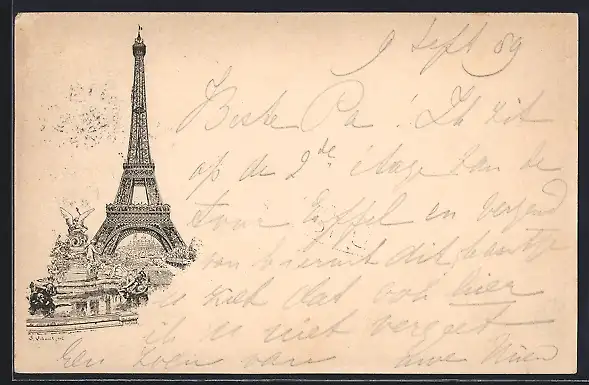 9 Sept 89
Beste Pa! Ik zit
op de 2de étage van de
tour Eiffel en verzend
van hieruit dit kaartje
u ziet dat ook hier
ik u niet vergeet
Een zoen van uwe